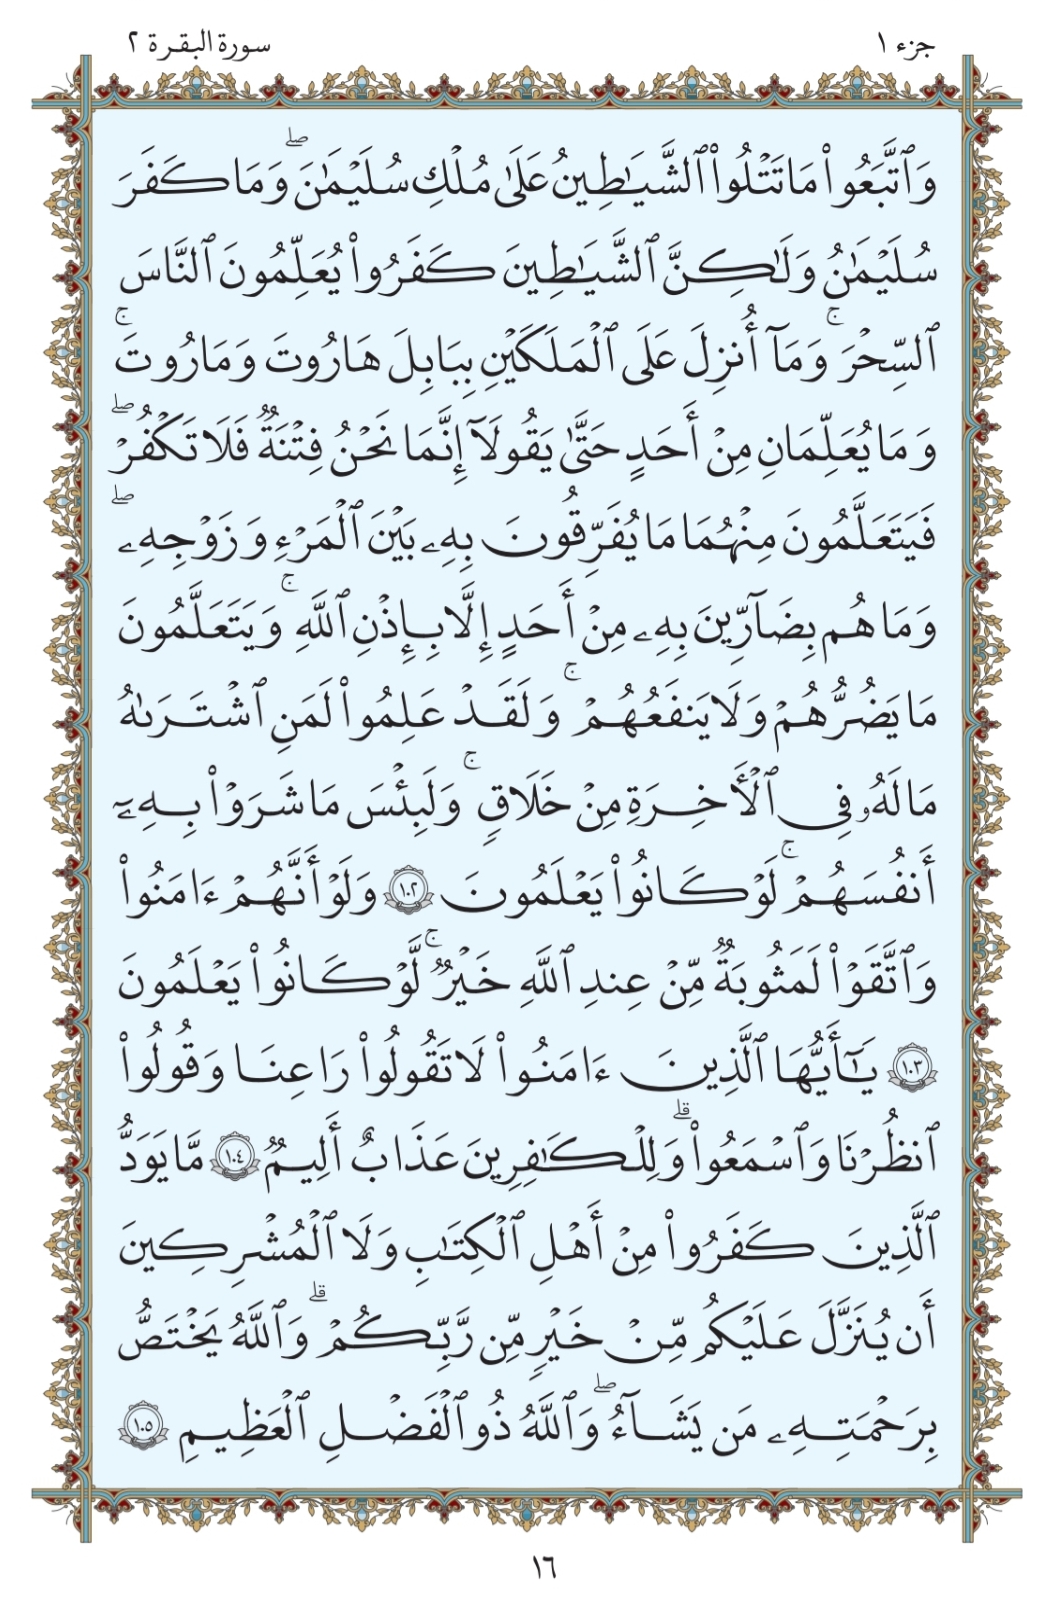 جزء ١
سورة البقرة ٢
وَٱتَّبَعُوا۟ مَا تَتْلُوا۟ ٱلشَّيَـٰطِينُ عَلَىٰ مُلْكِ سُلَيْمَـٰنَ ۖ وَمَا كَفَرَ
سُلَيْمَـٰنُ وَلَـٰكِنَّ ٱلشَّيَـٰطِينَ كَفَرُوا۟ يُعَلِّمُونَ ٱلنَّاسَ
ٱلسِّحْرَ ۚ وَمَآ أُنزِلَ عَلَى ٱلْمَلَكَيْنِ بِبَابِلَ هَارُوتَ وَمَارُوتَ ۚ
وَمَا يُعَلِّمَانِ مِنْ أَحَدٍ حَتَّىٰ يَقُولَآ إِنَّمَا نَحْنُ فِتْنَةٌ فَلَا تَكْفُرْ ۖ
فَيَتَعَلَّمُونَ مِنْهُمَا مَا يُفَرِّقُونَ بِهِۦ بَيْنَ ٱلْمَرْءِ وَزَوْجِهِۦ ۖ
وَمَا هُم بِضَآرِّينَ بِهِۦ مِنْ أَحَدٍ إِلَّا بِإِذْنِ ٱللَّهِ ۚ وَيَتَعَلَّمُونَ
مَا يَضُرُّهُمْ وَلَا يَنفَعُهُمْ ۚ وَلَقَدْ عَلِمُوا۟ لَمَنِ ٱشْتَرَىٰهُ
مَا لَهُۥ فِى ٱلْـَٔاخِرَةِ مِنْ خَلَـٰقٍ ۚ وَلَبِئْسَ مَا شَرَوْا۟ بِهِۦٓ
أَنفُسَهُمْ ۚ لَوْ كَانُوا۟ يَعْلَمُونَ ١٠٢ وَلَوْ أَنَّهُمْ ءَامَنُوا۟
وَٱتَّقَوْا۟ لَمَثُوبَةٌ مِّنْ عِندِ ٱللَّهِ خَيْرٌ ۚ لَّوْ كَانُوا۟ يَعْلَمُونَ
١٠٣ يَـٰٓأَيُّهَا ٱلَّذِينَ ءَامَنُوا۟ لَا تَقُولُوا۟ رَٰعِنَا وَقُولُوا۟
ٱنظُرْنَا وَٱسْمَعُوا۟ ۗ وَلِلْكَـٰفِرِينَ عَذَابٌ أَلِيمٌ ١٠٤ مَّا يَوَدُّ
ٱلَّذِينَ كَفَرُوا۟ مِنْ أَهْلِ ٱلْكِتَـٰبِ وَلَا ٱلْمُشْرِكِينَ
أَن يُنَزَّلَ عَلَيْكُم مِّنْ خَيْرٍ مِّن رَّبِّكُمْ ۗ وَٱللَّهُ يَخْتَصُّ
بِرَحْمَتِهِۦ مَن يَشَآءُ ۚ وَٱللَّهُ ذُو ٱلْفَضْلِ ٱلْعَظِيمِ ١٠٥
١٦